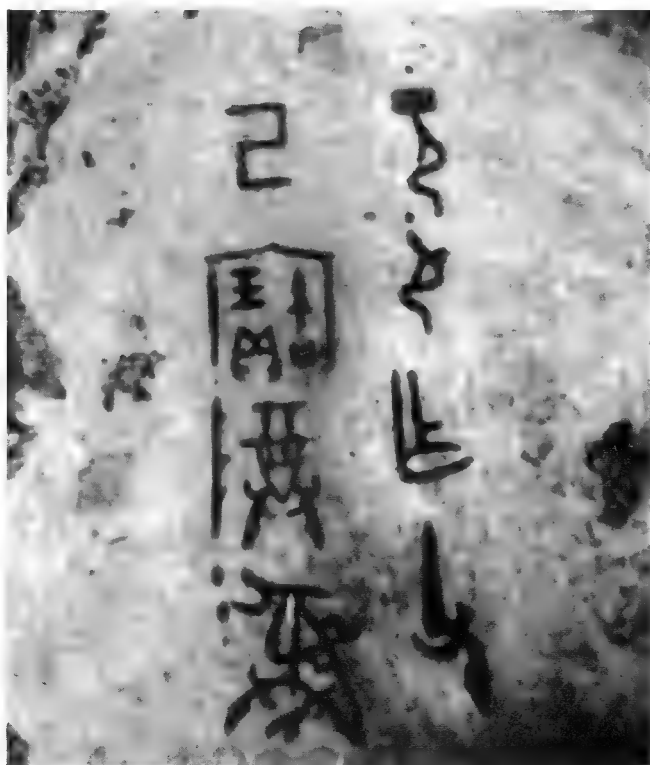 乍父
己寶尊彝